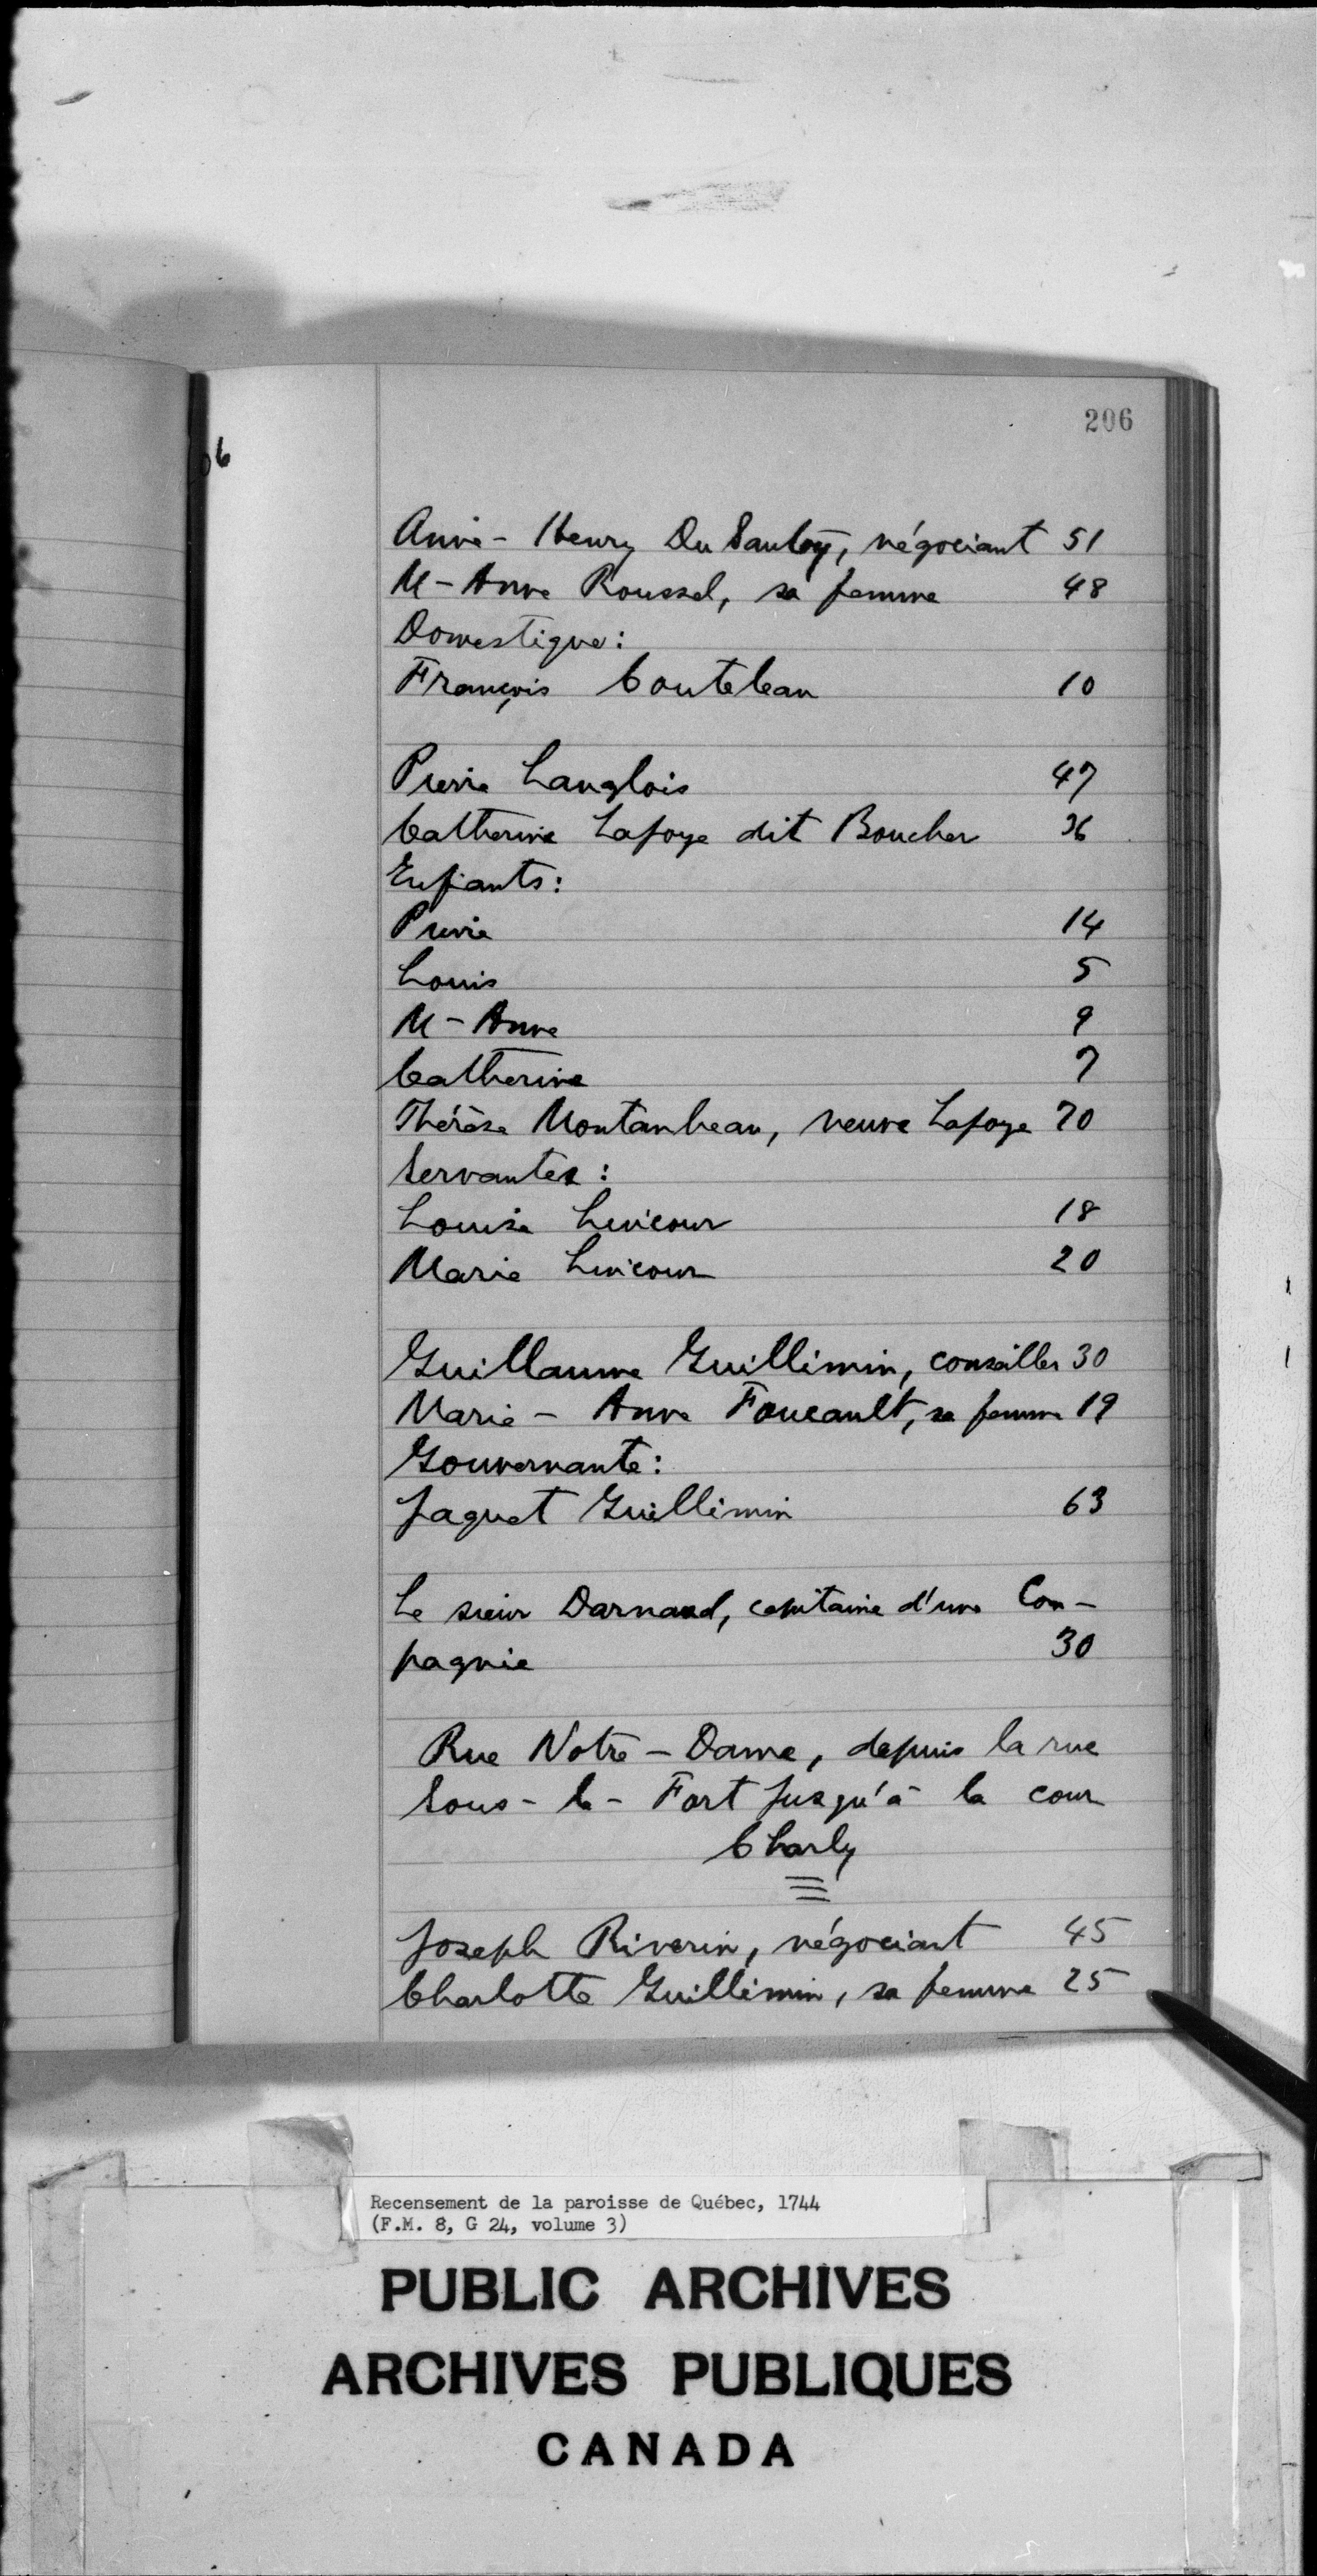 206
6
Anne - Henry Du Sautoy, négociant 51
M - Anne Roussel, sa femme 48
Domestique:
François Couteleau 10
Pierre Langlois 47
Catherine Lafoye dit Boucher 36
Enfants:
Pierre 14
Louis 5
M - Anne 9
Catherine 7
Thérèse Montambeau, veuve Lafoye 70
Servantes:
Louise 18
Marie 20
Guillaume Guillimin, conseiller 30
Marie - Anne Foucault, sa femme 19
Gouvernante:
Jaquet Guillimin 63
Le sieur Darnaud, capitaine d'une Com-
pagnie 30
Rue Notre - Dame, depuis la rue
Sous - le - Fort jusqu'à la cour
Charly
Joseph Riverin, négociant 45
Charlotte Guillimin, sa femme 25
Recensement de la paroisse de Québec, 1744
(F.M. 8, G 24, volume 3)
PUBLIC ARCHIVES
ARCHIVES PUBLIQUES
CANADA